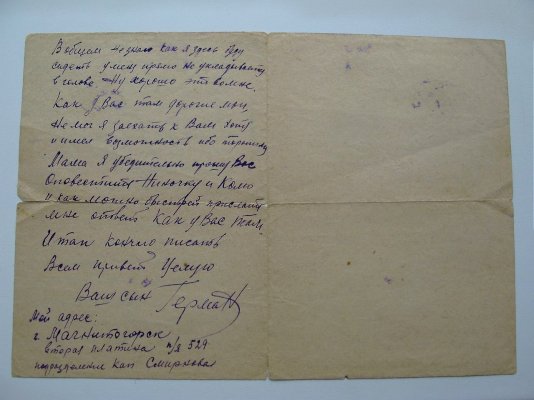 В общем не знаю как я здесь буду
сидеть у меня прямо не укладывает
в голове. Ну хорошо это
Как у Вас там дорогие мои,
Не мог я заехать к Вам хотя
и имел возможность ибо
Мама я убедительно прошу Вас
Оповестить Ниночку и Колю
и как можно быстрей прислать
мне ответ Как у Вас там.
Итак кончаю писать
Всем привет Целую
Ваш сын Герман
Мой адрес:
г. Магнитогорск
вторая плотина п/я 529
подразделение кап Смирнова